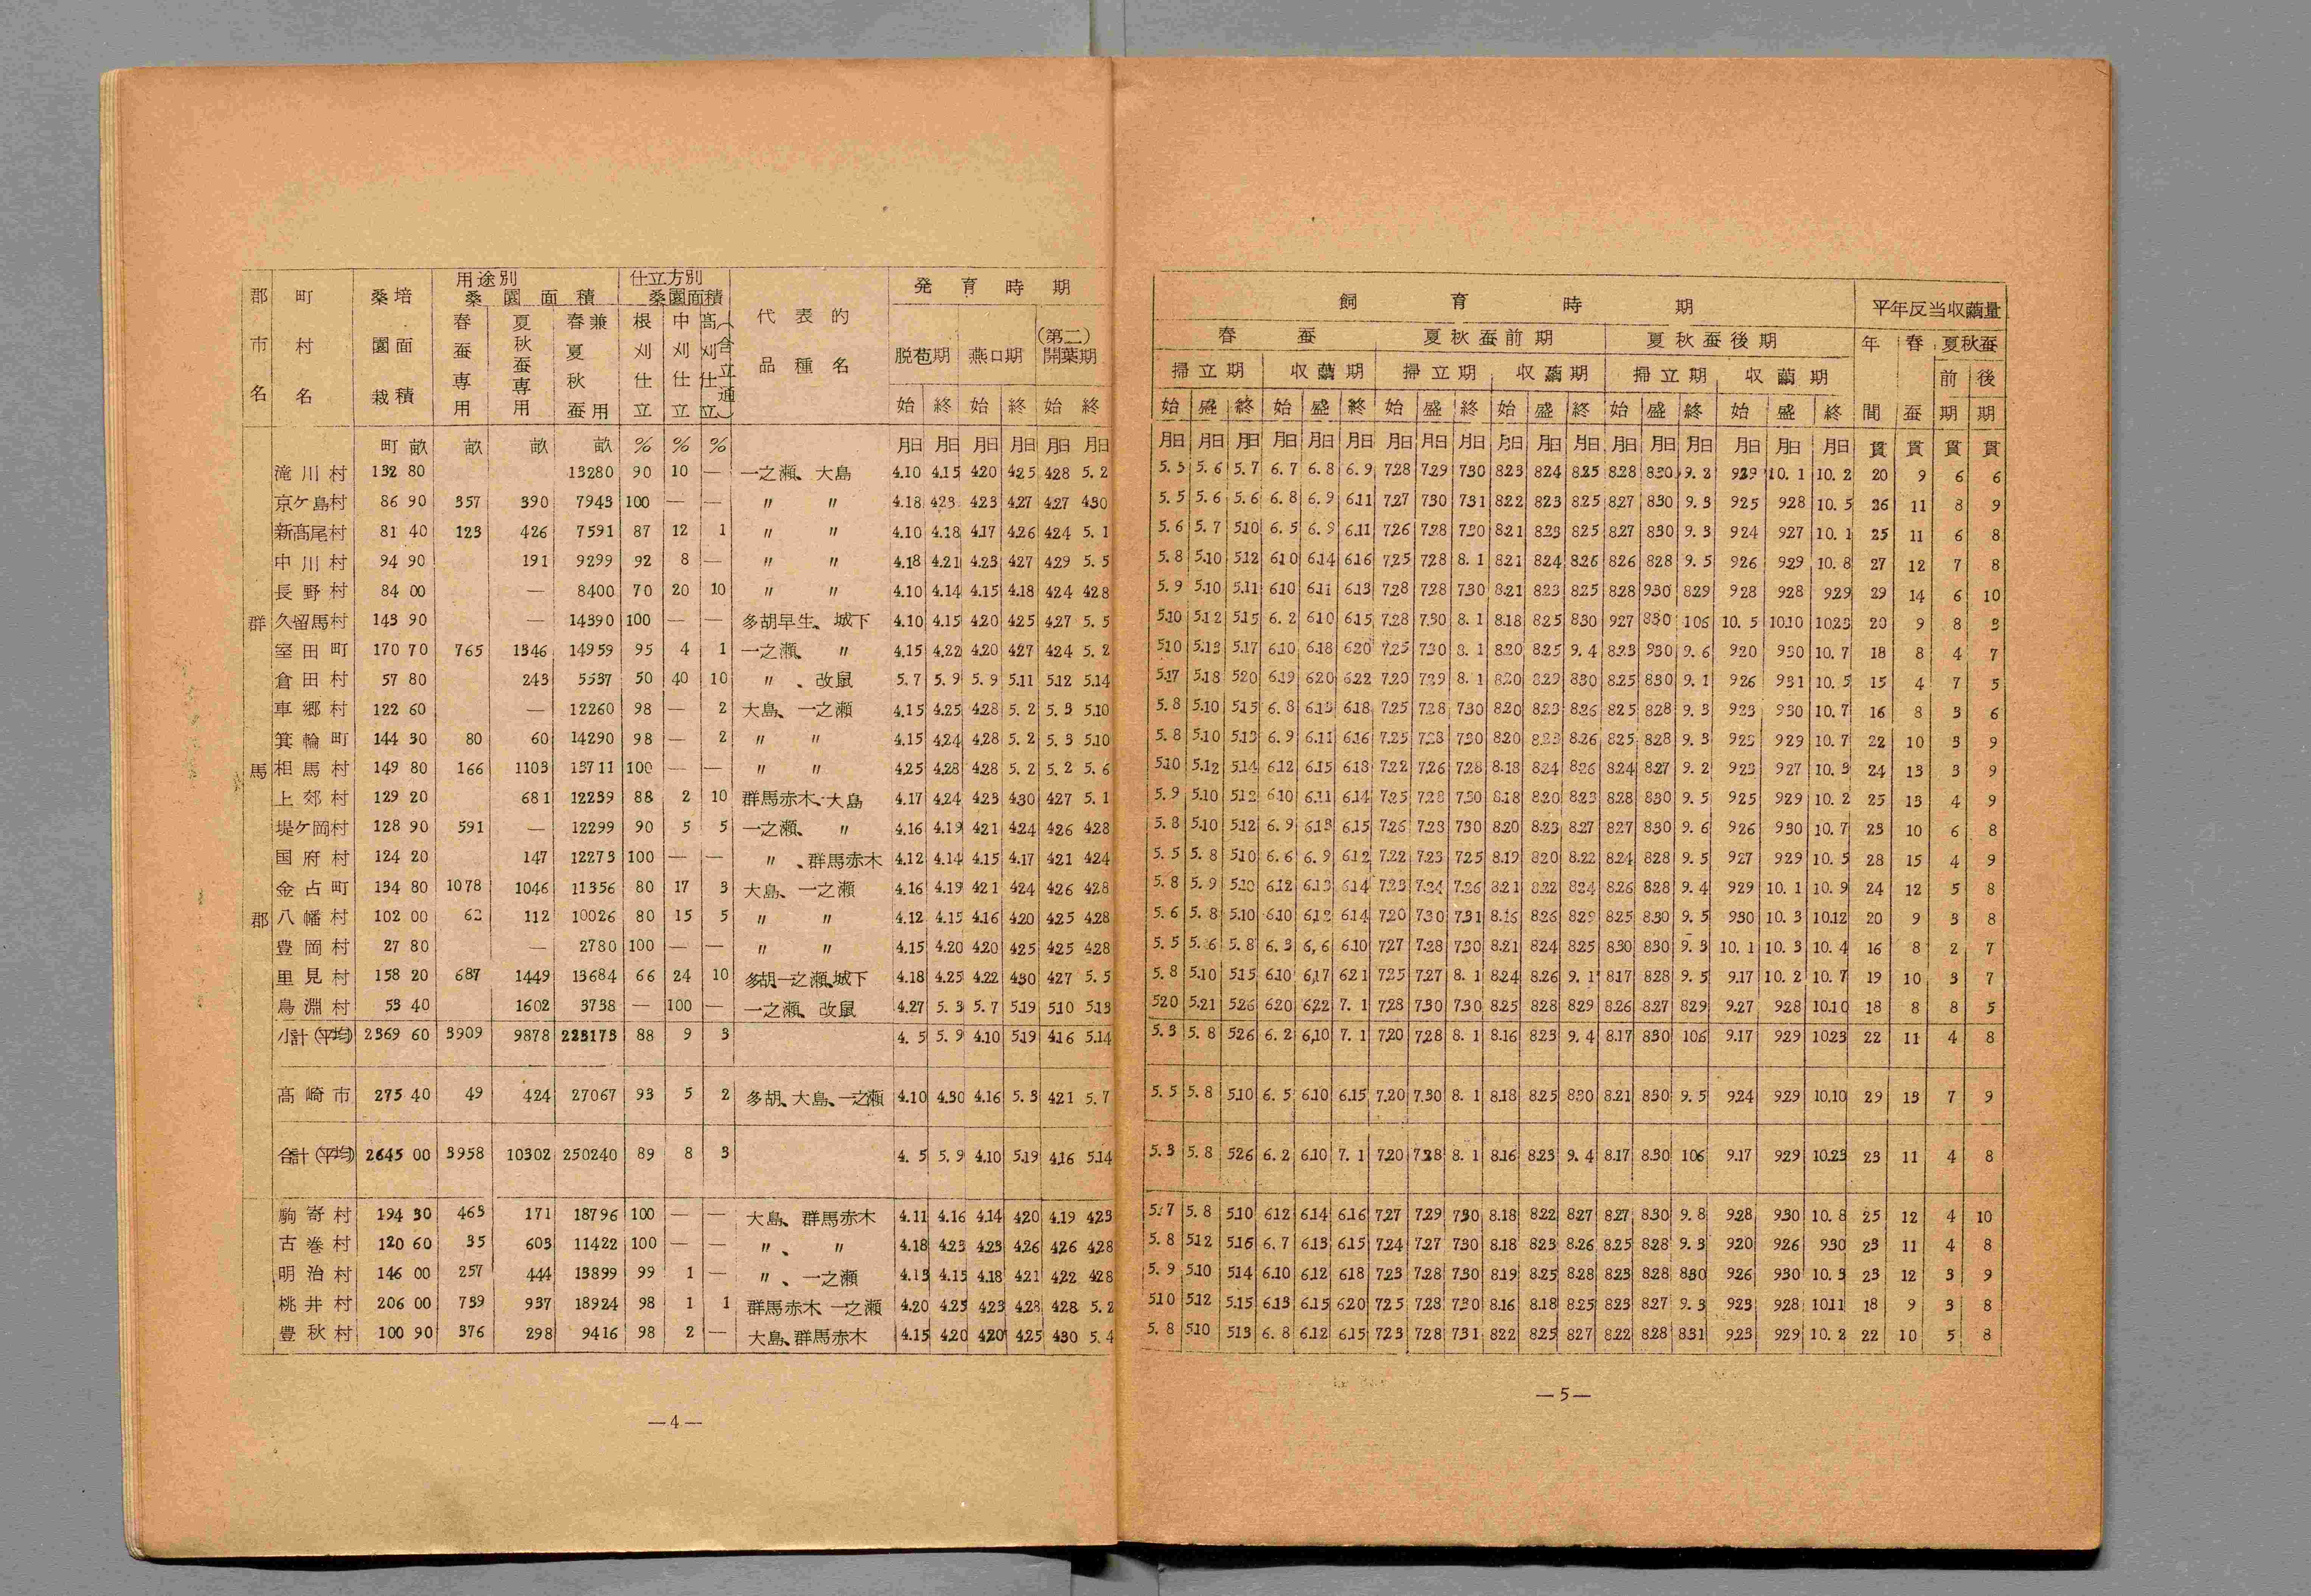 郡市名 町村名 桑園栽培面積 用途別桑園面積 仕立方別桑園面積 代表的品種名 発育時期
春蚕専用 夏秋蚕専用 春夏秋蚕兼用 根刈仕立 中刈仕立 高刈仕立(含立通) 脱苞期 燕口期 (第二)開葉期
始 終 始 終 始 終
町 畝 畝 畝 畝 % % % 月日 月日 月日 月日 月日 月日
群馬郡
滝川村 132 80 13280 90 10 — 一之瀬、大島 4.10 4.15 4.20 4.25 4.28 5.2
京ケ島村 86 90 357 390 7943 100 — — 〃 〃 4.18 4.23 4.23 4.27 4.27 4.30
新高尾村 81 40 123 426 7591 87 12 1 〃 〃 4.10 4.18 4.17 4.26 4.24 5.1
中川村 94 90 191 9299 92 8 — 〃 〃 4.18 4.21 4.23 4.27 4.29 5.5
長野村 84 00 — 8400 70 20 10 〃 〃 4.10 4.14 4.15 4.18 4.24 4.28
久留馬村 143 90 — 14390 100 — — 多胡早生、城下 4.10 4.15 4.20 4.25 4.27 5.5
室田町 170 70 765 1346 14959 95 4 1 一之瀬、〃 4.15 4.22 4.20 4.27 4.24 5.2
倉田村 57 80 243 5537 50 40 10 〃、改鼠 5.7 5.9 5.9 5.11 5.12 5.14
車郷村 122 60 — 12260 98 — 2 大島、一之瀬 4.15 4.25 4.28 5.2 5.3 5.10
箕輪町 144 30 80 60 14290 98 — 2 〃 〃 4.15 4.24 4.28 5.2 5.3 5.10
相馬村 149 80 166 1103 13711 100 — — 〃 〃 4.25 4.28 4.28 5.2 5.2 5.6
上郊村 129 20 681 12239 88 2 10 群馬赤木、大島 4.17 4.24 4.23 4.30 4.27 5.1
堤ケ岡村 128 90 591 — 12299 90 5 5 一之瀬、〃 4.16 4.19 4.21 4.24 4.26 4.28
国府村 124 20 147 12273 100 — — 〃、群馬赤木 4.12 4.14 4.15 4.17 4.21 4.24
金占町 134 80 1078 1046 11356 80 17 3 大島、一之瀬 4.16 4.19 4.21 4.24 4.26 4.28
八幡村 102 00 62 112 10026 80 15 5 〃 〃 4.12 4.15 4.16 4.20 4.25 4.28
豊岡村 27 80 — 2780 100 — — 〃 〃 4.15 4.20 4.20 4.25 4.25 4.28
里見村 158 20 687 1449 13684 66 24 10 多胡、一之瀬、城下 4.18 4.25 4.22 4.30 4.27 5.5
烏淵村 53 40 1602 3738 — 100 — 一之瀬、改鼠 4.27 5.3 5.7 5.19 5.10 5.13
小計(平均) 2369 60 3909 9878 223173 88 9 3 4.5 5.9 4.10 5.19 4.16 5.14
高崎市 275 40 49 424 27067 93 5 2 多胡、大島、一之瀬 4.10 4.30 4.16 5.3 4.21 5.7
合計(平均) 2645 00 3958 10302 250240 89 8 3 4.5 5.9 4.10 5.19 4.16 5.14
駒寄村 194 30 463 171 18796 100 — — 大島、群馬赤木 4.11 4.16 4.14 4.20 4.19 4.23
古巻村 120 60 35 603 11422 100 — — 〃、〃 4.18 4.23 4.23 4.26 4.26 4.28
明治村 146 00 257 444 13899 99 1 — 〃、一之瀬 4.13 4.15 4.18 4.21 4.22 4.28
桃井村 206 00 739 937 18924 98 1 1 群馬赤木 一之瀬 4.20 4.25 4.23 4.28 4.28 5.2
豊秋村 100 90 376 298 9416 98 2 — 大島、群馬赤木 4.15 4.20 4.20 4.25 4.30 5.4
—4—
飼育時期 平年反当収繭量
春蚕 夏秋蚕前期 夏秋蚕後期 年間 春蚕 夏秋蚕
掃立期 収繭期 掃立期 収繭期 掃立期 収繭期 前期 後期
始 盛 終 始 盛 終 始 盛 終 始 盛 終 始 盛 終 始 盛 終
月日 月日 月日 月日 月日 月日 月日 月日 月日 月日 月日 月日 月日 月日 月日 月日 月日 月日 貫 貫 貫 貫
5.3 5.6 5.7 6.7 6.8 6.9 7.28 7.29 7.30 8.23 8.24 8.25 8.28 8.30 9.2 9.29 10.1 10.2 20 9 6 6
5.5 5.6 5.6 6.8 6.9 6.11 7.27 7.30 7.31 8.22 8.23 8.25 8.27 8.30 9.3 9.25 9.28 10.5 26 11 8 9
5.6 5.7 5.10 6.5 6.9 6.11 7.26 7.28 7.30 8.21 8.23 8.25 8.27 8.30 9.3 9.24 9.27 10.1 25 11 6 8
5.8 5.10 5.12 6.10 6.14 6.16 7.25 7.28 8.1 8.21 8.24 8.26 8.26 8.28 9.5 9.26 9.29 10.8 27 12 7 8
5.9 5.10 5.11 6.10 6.11 6.13 7.28 7.28 7.30 8.21 8.23 8.25 8.28 9.30 8.29 9.28 9.28 9.29 29 14 6 10
5.10 5.12 5.15 6.2 6.10 6.15 7.28 7.30 8.1 8.18 8.25 8.30 9.27 8.30 10.6 10.5 10.10 10.23 20 9 8 3
5.10 5.13 5.17 6.10 6.18 6.20 7.25 7.30 8.1 8.20 8.25 9.4 8.23 9.30 9.6 9.20 9.30 10.7 18 8 4 7
5.17 5.18 5.20 6.19 6.20 6.22 7.20 7.29 8.1 8.20 8.29 8.30 8.25 8.30 9.1 9.26 9.31 10.5 15 4 7 5
5.8 5.10 5.15 6.8 6.13 6.18 7.25 7.28 7.30 8.20 8.23 8.26 8.25 8.28 9.3 9.23 9.30 10.7 16 8 3 6
5.8 5.10 5.13 6.9 6.11 6.16 7.25 7.28 7.30 8.20 8.23 8.26 8.25 8.28 9.3 9.23 9.29 10.7 22 10 3 9
5.10 5.12 5.14 6.12 6.15 6.18 7.22 7.26 7.28 8.18 8.24 8.26 8.24 8.27 9.2 9.23 9.27 10.3 24 13 3 9
5.9 5.10 5.12 6.10 6.11 6.14 7.25 7.28 7.30 8.18 8.20 8.23 8.28 8.30 9.5 9.25 9.29 10.2 25 13 4 9
5.8 5.10 5.12 6.9 6.13 6.15 7.26 7.28 7.30 8.20 8.23 8.27 8.27 8.30 9.6 9.26 9.30 10.7 23 10 6 8
5.5 5.8 5.10 6.6 6.9 6.12 7.22 7.23 7.25 8.19 8.20 8.22 8.24 8.28 9.5 9.27 9.29 10.5 28 15 4 9
5.8 5.9 5.10 6.12 6.13 6.14 7.23 7.24 7.26 8.21 8.22 8.24 8.26 8.28 9.4 9.29 10.1 10.9 24 12 5 8
5.6 5.8 5.10 6.10 6.12 6.14 7.20 7.30 7.31 8.16 8.26 8.29 8.25 8.30 9.5 9.30 10.3 10.12 20 9 3 8
5.5 5.6 5.8 6.3 6.6 6.10 7.27 7.28 7.30 8.21 8.24 8.25 8.30 8.30 9.3 10.1 10.3 10.4 16 8 2 7
5.8 5.10 5.15 6.10 6.17 6.21 7.25 7.27 8.1 8.24 8.26 9.1 8.17 8.28 9.5 9.17 10.2 10.7 19 10 3 7
5.20 5.21 5.26 6.20 6.22 7.1 7.28 7.30 7.30 8.25 8.28 8.29 8.26 8.27 8.29 9.27 9.28 10.10 18 8 8 5
5.3 5.8 5.26 6.2 6.10 7.1 7.20 7.28 8.1 8.16 8.23 9.4 8.17 8.30 10.6 9.17 9.29 10.23 22 11 4 8
5.5 5.8 5.10 6.5 6.10 6.15 7.20 7.30 8.1 8.18 8.25 8.30 8.21 8.30 9.5 9.24 9.29 10.10 29 13 7 9
5.3 5.8 5.26 6.2 6.10 7.1 7.20 7.28 8.1 8.16 8.23 9.4 8.17 8.30 10.6 9.17 9.29 10.23 23 11 4 8
5.7 5.8 5.10 6.12 6.14 6.16 7.27 7.29 7.30 8.18 8.22 8.27 8.27 8.30 9.8 9.28 9.30 10.8 25 12 4 10
5.8 5.12 5.16 6.7 6.13 6.15 7.24 7.27 7.30 8.18 8.23 8.26 8.25 8.28 9.3 9.20 9.26 9.30 23 11 4 8
5.9 5.10 5.14 6.10 6.12 6.18 7.23 7.28 7.30 8.19 8.25 8.28 8.23 8.28 8.30 9.26 9.30 10.3 23 12 3 9
5.10 5.12 5.15 6.13 6.15 6.20 7.25 7.28 7.30 8.16 8.18 8.25 8.23 8.27 9.3 9.23 9.28 10.11 18 9 3 8
5.8 5.10 5.13 6.8 6.12 6.15 7.23 7.28 7.31 8.22 8.25 8.27 8.22 8.28 8.31 9.23 9.29 10.2 22 10 5 8
—5—